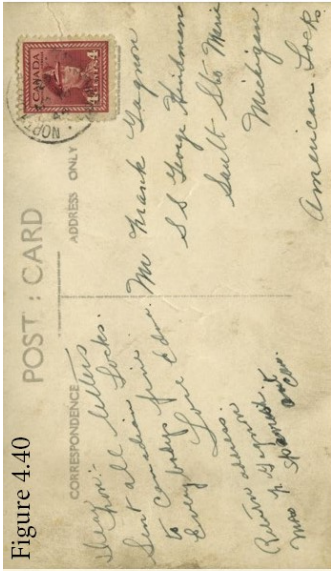 Figure 4.40
POST : CARD
CORRESPONDENCE
ADDRESS ONLY
CANADA
4 4
NORTH
Hon:
Sent all letters
to Canadian Locks.
Everybodys fine
Love
Return address.
Mrs F Gagnon
Spanish
Ont
Can.
Mr Frank Gagnon
SS George Hindman
Sault Ste Marie
Michigan
American Locks